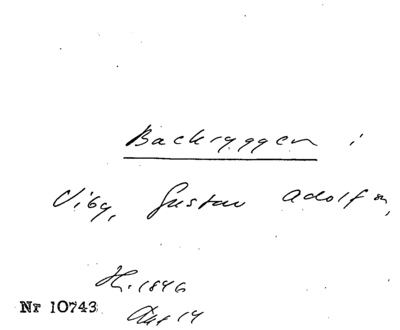 Backryggen i
Viby, Gustav Adolf
H. 1846
Nr 10743
Akt 14